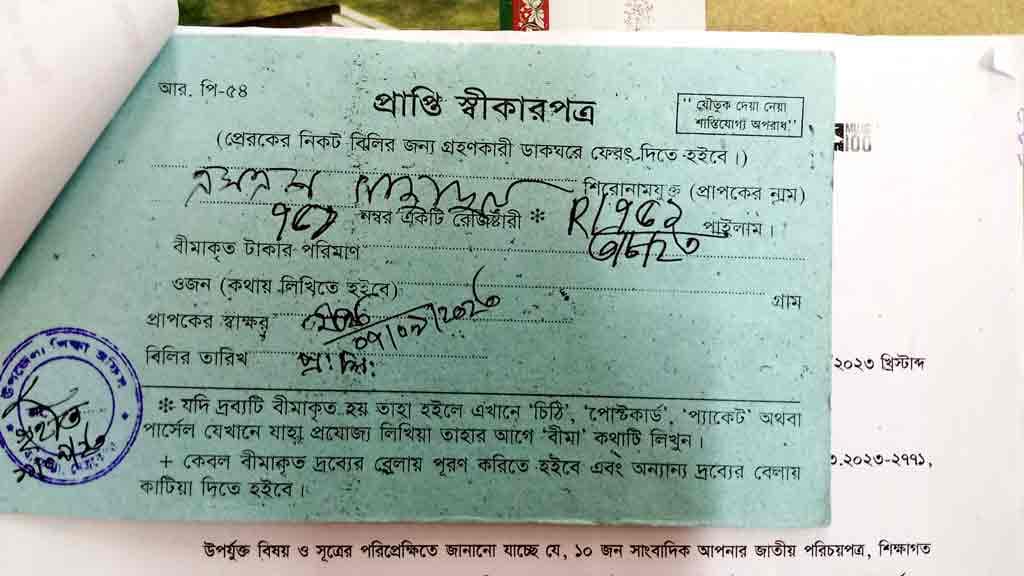 আর. পি-৫৪
প্রাপ্তি স্বীকারপত্র
"যৌতুক দেয়া নেয়া
শাস্তিযোগ্য অপরাধ"
(প্রেরকের নিকট বিলির জন্য গ্রহণকারী ডাকঘরে ফেরৎ দিতে হইবে।)
শিরোনামযুক্ত (প্রাপকের নাম)
নম্বর একটি রেজিষ্টারী * পাইলাম।
বীমাকৃত টাকার পরিমাণ
ওজন (কথায় লিখিতে হইবে) গ্রাম
প্রাপকের স্বাক্ষর
বিলির তারিখ
* যদি দ্রব্যটি বীমাকৃত হয় তাহা হইলে এখানে 'চিঠি', 'পোস্টকার্ড', 'প্যাকেট' অথবা
পার্সেল যেখানে যাহা প্রযোজ্য লিখিয়া তাহার আগে 'বীমা' কথাটি লিখুন।
+ কেবল বীমাকৃত দ্রব্যের বেলায় পূরণ করিতে হইবে এবং অন্যান্য দ্রব্যের বেলায়
কাটিয়া দিতে হইবে।
২০২৩ খ্রিস্টাব্দ
.২০২৩-২৭৭১,
উপর্যুক্ত বিষয় ও সূত্রের পরিপ্রেক্ষিতে জানানো যাচ্ছে যে, ১০ জন সাংবাদিক আপনার জাতীয় পরিচয়পত্র, শিক্ষাগত